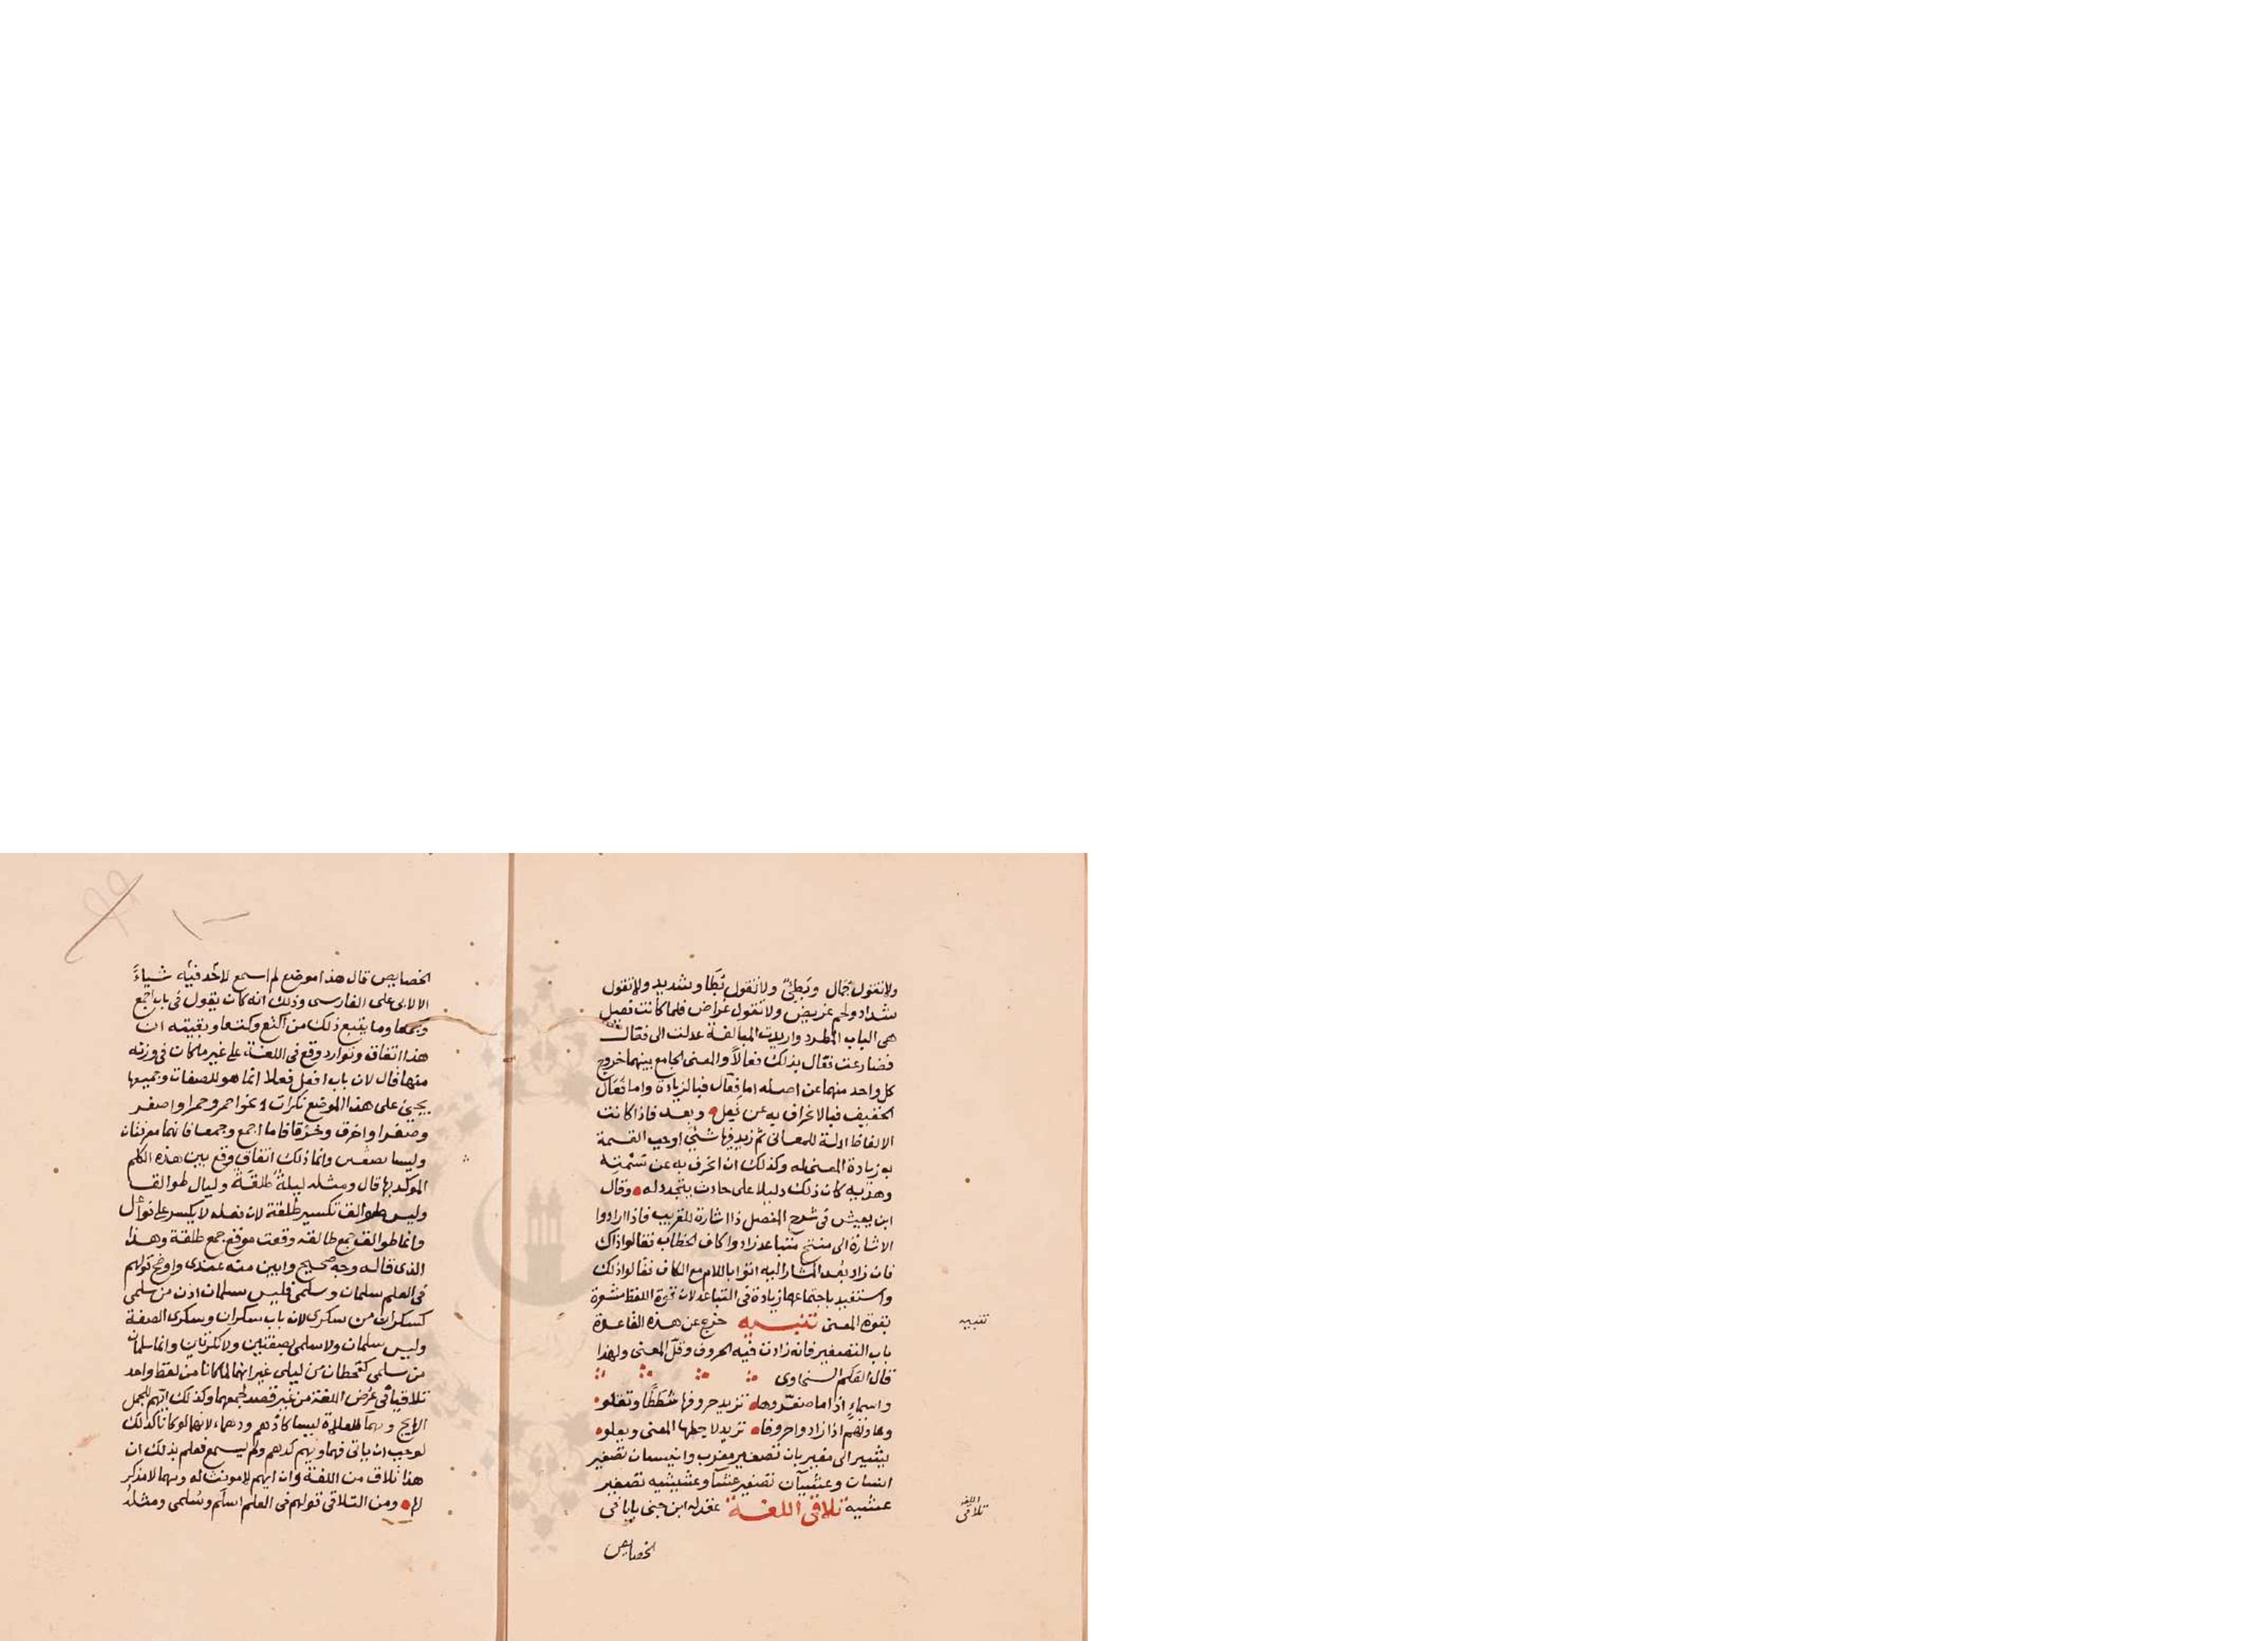 ولا تقول جمال وبطئ ولا تقول بطا وشديد ولا تقول
شداد ولحم غريض ولا تقول غراض فلما كانت فعيل
هى الباب المطرد واريدت المبالغة عدلت الى فعال
فضارعت فعال بذلك فعالا والمعنى الجامع بينهما خروج
كل واحد منهما عن اصله اما فعال فبالزيادة واما فعال
الخفيف فبالانحراف به عن فعيل وبعد فاذا كانت
الالفاظ ادلة للمعانى ثم زيد فيها شئ اوجب القسمة
به زيادة المعنى له وكذلك ان انحرف به عن سمته
وهديه كان ذلك دليلا على حادث يتجدد له وقال
ابن يعيش فى شرح المفصل ذا اشارة للقريب فاذا ارادوا
الاشارة الى متنح متباعد زادوا كاف الخطاب فقالوا ذاك
فان زاد بعد المشار اليه اتوا باللام مع الكاف فقالوا ذلك
واستفيد باجتماعهما زيادة فى التباعد لان قوة اللفظ مشعرة
بقوة المعنى تنبيه خرج عن هذه القاعدة
باب التصغير فانه زادت فيه الحروف وقل المعنى ولهذا
قال العلم السخاوى
واسماء اذا ما صغروها تزيد حروفها شططا وتعلو
وعادتهم اذا زادوا حروفا تزيد لاجلها المعنى ويعلو
يشير الى مغيربان تصغير مغرب وانيسيان تصغير
انسان وعشيان تصغير عشا وعشيشيه تصغير
عشية تلاقى اللغة عقد له ابن جنى بابا فى
الخصايص
تنبيه
تلاقى
اللغة
الخصايص قال هذا موضع لم اسمع لاحد فيه شياء
الا لابى على الفارسى وذلك انه كان يقول فى باب اجمع
وجمعا وما يتبع ذلك من اكتع وكتعا وبقيته ان
هذا اتفاق وتوارد وقع فى اللغة على غير ما كان فى وزنه
منها قال لان باب افعل فعلا انما هو للصفات وجميعها
يجئ على هذا الموضع نكرات نحو احمر وحمرا واصفر
وصفرا واخرق وخرقا فاما اجمع وجمعا فانهما معرفتان
وليسا بصفتين وانما ذلك اتفاق وقع بين هذه الكلم
الموكد بها قال ومثله ليلة طلقة وليال طوالق
وليس طوالق تكسير طلقة لان فعله لا يكسر على فواعل
وانما طوالق جمع طالقه وقعت موقع جمع طلقة وهذا
الذى قاله وجه صحيح وابين منه عندى واوضح قولهم
فى العلم سلمان وسلمى فليس سلمان اذن من سلمى
كسكران من سكرى لان باب سكران وسكرى الصفة
وليس سلمان ولا سلمى بصفتين ولا نكرتين وانما سلمان
من سلمى كقحطان من ليلى غير انهما لما كانا من لفظ واحد
تلاقيا فى عرض اللغة من غير قصد لجمعهما وكذلك ايهم للجمل
الهايج ويهما للفلاة ليسا كادهم ودهماء لانهما لو كانا كذلك
لوجب ان ياتى فيهما يهم كدهم ولم يسمع فعلم بذلك ان
هذا تلاق من اللغة وان ايهم لا مونث له ويهما لا مذكر
لها ومن التلاقى قولهم فى العلم اسلم وسلمى ومثله